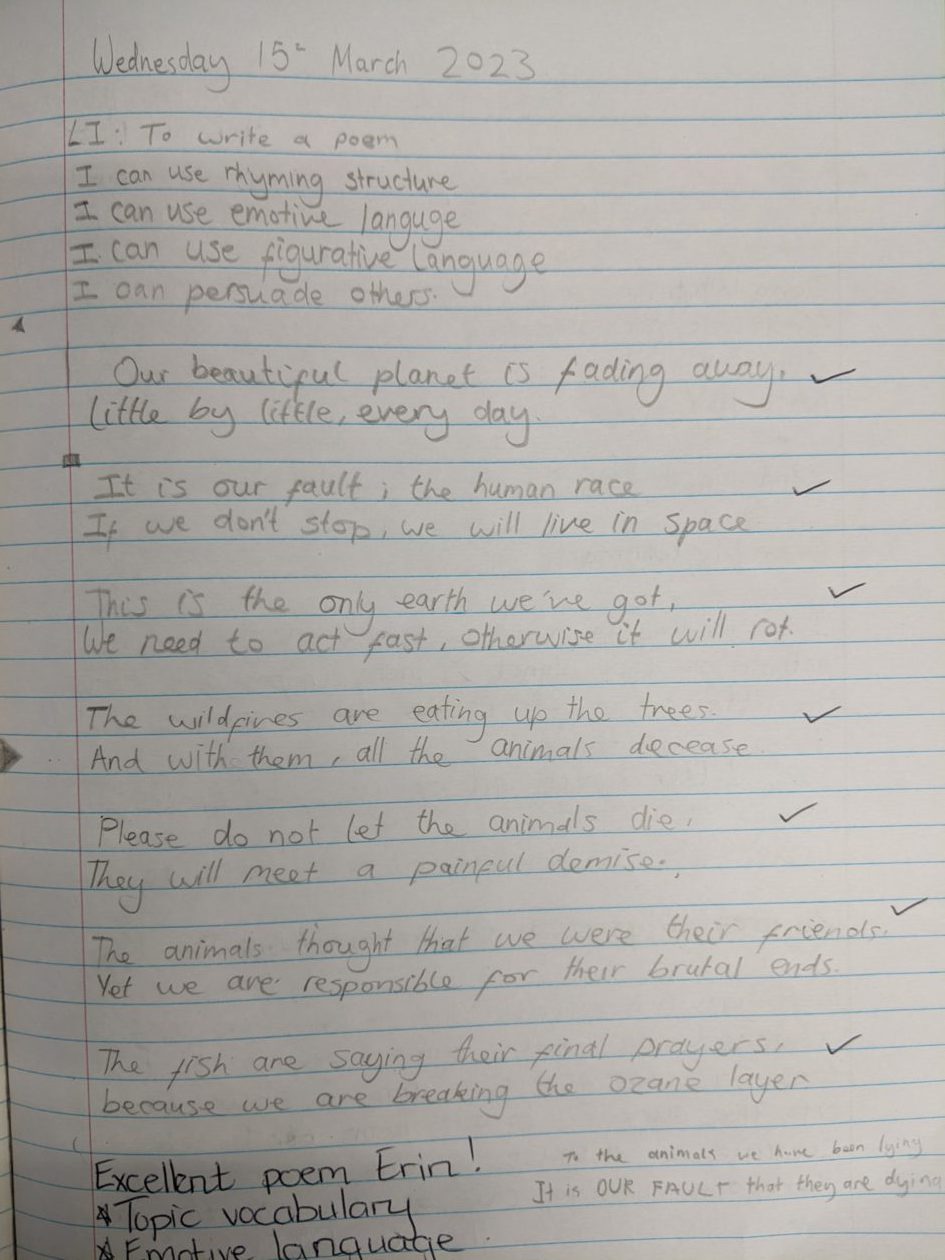 Wednesday 15th March 2023
LI: To write a poem
I can use rhyming structure
I can use emotive languge
I can use figurative language
I can persuade others.
Our beautiful planet is fading away,
little by little, every day.
It is our fault ; the human race
If we don't stop, we will live in space
This is the only earth we've got,
We need to act fast, otherwise it will rot.
The wildfires are eating up the trees.
And with them, all the animals decease.
Please do not let the animals die,
They will meet a painful demise.
The animals thought that we were their friends.
Yet we are responsible for their brutal ends.
The fish are saying their final prayers,
because we are breaking the ozane layer
To the animals we have been lying
It is OUR FAULT that they are dying
Excellent poem Erin!
*Topic vocabulary
*Emotive language.